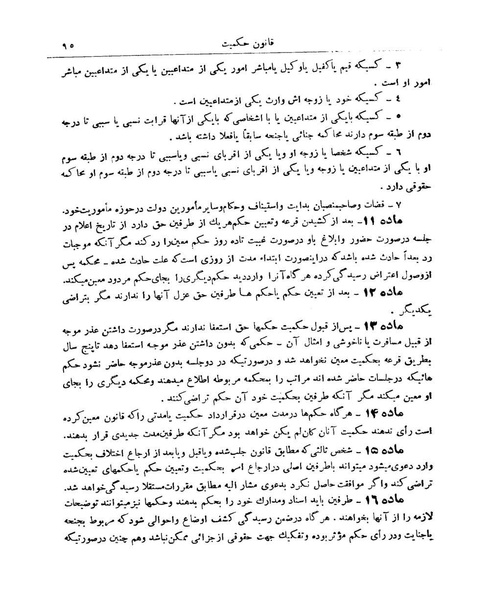 قانون حکمیت
۹۵
۳ - کسیکه قیم یاکفیل یاوکیل یامباشر امور یکی از متداعیین یا یکی از متداعیین مباشر
امور او است .
۴ - کسیکه خود یا زوجه اش وارث یکی ازمتداعیین است .
۵ - کسیکه با یکی از متداعیین یا با اشخاصی که بایکی ازآنها قرابت نسبی یا سببی تا درجه
دوم از طبقه سوم دارند محاکمه جنائی یاجنحه سابقاً یافعلا داشته باشد .
۶ - کسیکه شخصا یا زوجه او ویا یکی از اقربای نسبی ویاسببی تا درجه دوم از طبقه سوم
او با یکی از متداعیین یا زوجه ویا یکی از اقربای نسبی یاسببی تا درجه دوم از طبقه سوم او محاکمه
حقوقی دارد .
۷ - قضات وصاحبمنصبان بدایت واستیناف وحکام وسایر مأمورین دولت درحوزه مأموریت خود.
ماده ۱۱ - بعد از کشیدن قرعه وتعیین حکم هریك از طرفین حق دارد از تاریخ اعلام در
جلسه درصورت حضور وابلاغ باو درصورت غیبت تاده روز حکم معین را رد کند مگر آنکه موجبات
رد بعداً حادث شده باشد که دراینصورت ابتداء مدت از روزی است که علت حادث شده - محکمه پس
ازوصول اعتراض رسیدگی کرده هرگاه آنرا وارد دید حکم دیگری را بجای حکم مردود معین میکند.
ماده ۱۲ - بعد از تعیین حکم یاحکم ها طرفین حق عزل آنها را ندارند مگر بتراضی
یکدیگر .
ماده ۱۳ - پس از قبول حکمیت حکمها حق استعفا ندارند مگر درصورت داشتن عذر موجه
از قبیل مسافرت یا ناخوشی و امثال آن - حکمی که بدون داشتن عذر موجه استعفا دهد تاپنج سال
بطریق قرعه بحکمیت معین نخواهد شد و درصورتیکه در دوجلسه بدون عذرموجه حاضر نشود حکم
هائیکه در جلسات حاضر شده اند مراتب را بمحکمه مربوطه اطلاع میدهند ومحکمه دیگری را بجای
او معین میکند مگر آنکه طرفین بحکمیت خود آن حکم تراضی کنند .
ماده ۱۴ - هرگاه حکم ها درمدت معین درقرارداد حکمیت یامدتی را که قانون معین کرده
است رأی ندهند حکمیت آنان کان لم یکن خواهد بود مگر آنکه طرفین مدت جدیدی قرار بدهند.
ماده ۱۵ - شخص ثالثی که مطابق قانون جلب شده ویاقبل ویابعد از ارجاع اختلاف بحکمیت
وارد دعوی میشود میتواند باطرفین اصلی درارجاع امر بحکمیت وتعیین حکم یاحکمهای تعیین شده
تراضی کند واگر موافقت حاصل نگردد بدعوی مشار الیه مطابق مقررات مستقلا رسیدگی خواهد شد.
ماده ۱۶ - طرفین باید اسناد ومدارك خود را بحکم بدهند وحکمها نیز میتوانند توضیحات
لازمه را از آنها بخواهند . هرگاه درضمن رسیدگی کشف اوضاع واحوالی شود که مربوط بجنحه
یاجنایت ودر رأی حکم مؤثر بوده وتفکیك جهت حقوقی از جزائی ممکن نباشد وهم چنین درصورتیکه